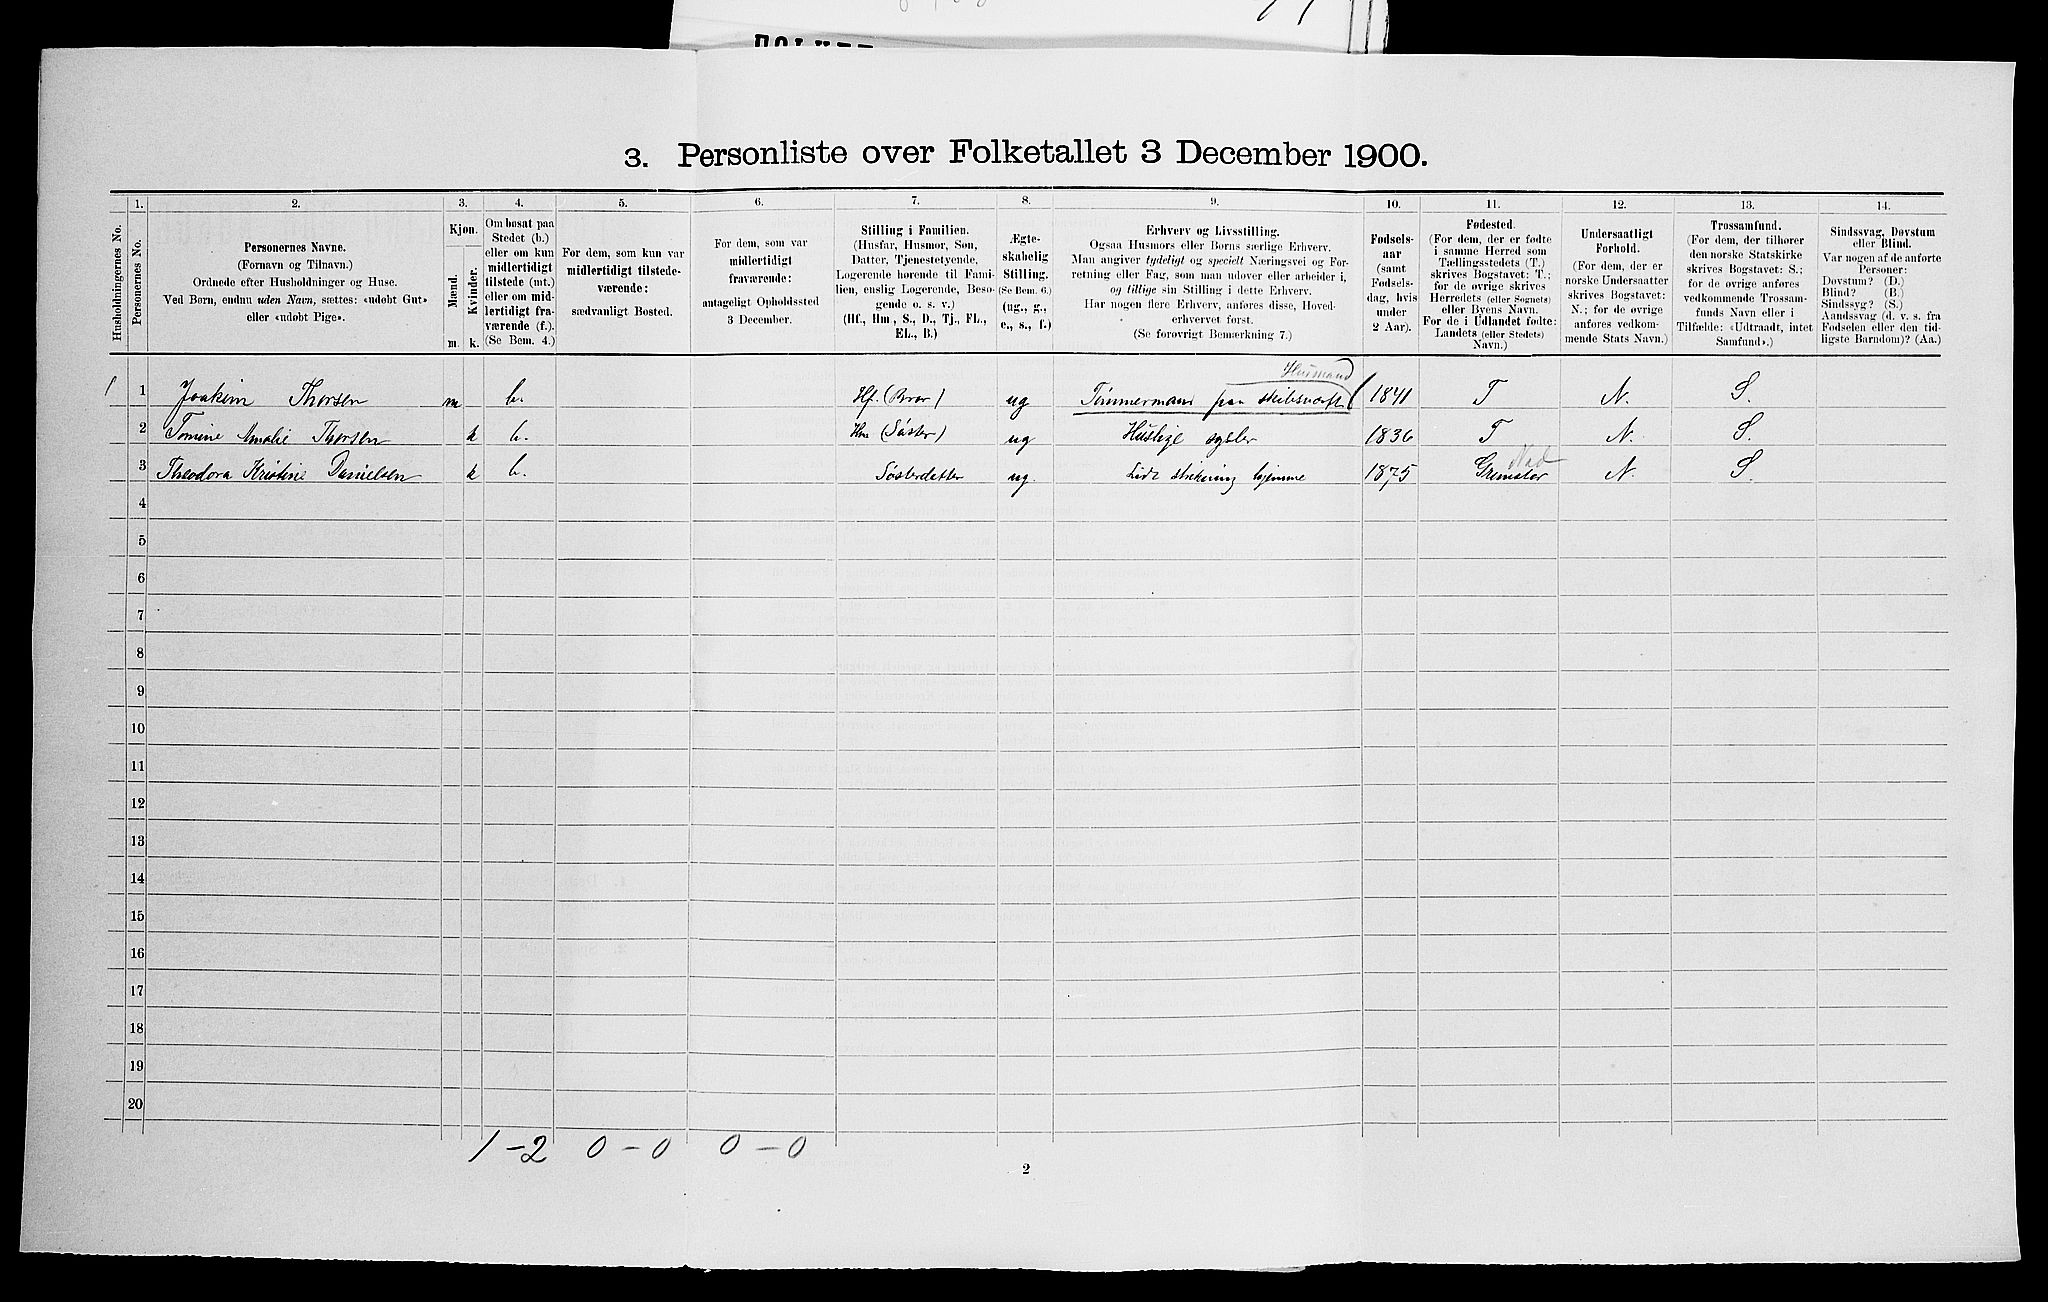 3. Personliste over Folketallet 3 December 1900.
Husholdningernes No.
1.
Personernes No.
2.
Personernes Navne.
(Fornavn og Tilnavn.)
Ordnede efter Husholdninger og Huse.
Ved Børn, endnu uden Navn, sættes: «udøbt Gut»
eller «udøbt Pige».
3.
Kjøn.
Mænd.
Kvinder.
m.
k.
4.
Om bosat paa
Stedet (b.)
eller om kun
midlertidigt
tilstede (mt.)
eller om mid-
lertidigt fra-
værende (f.).
(Se Bem. 4.)
5.
For dem, som kun var
midlertidigt tilstede-
værende:
sædvanligt Bosted.
6.
For dem, som var
midlertidigt
fraværende:
antageligt Opholdssted
3 December.
7.
Stilling i Familien.
(Husfar, Husmor, Søn,
Datter, Tjenestetyende,
Logerende hørende til Fami-
lien, enslig Logerende, Besø-
gende o. s. v.)
(Hf., Hm., S., D., Tj., FL.,
EL., B.)
8.
Ægte-
skabelig
Stilling.
(Se Bem. 6.)
(ug., g.,
e., s., f.)
9.
Erhverv og Livsstilling.
Ogsaa Husmors eller Børns særlige Erhverv.
Man angiver tydeligt og specielt Næringsvei og For-
retning eller Fag, som man udøver eller arbeider i,
og tillige sin Stilling i dette Erhverv.
Har nogen flere Erhverv, anføres disse, Hoved-
erhvervet først.
(Se forøvrigt Bemærkning 7.)
10.
Fødsels-
aar
(samt
Fødsels-
dag, hvis
under
2 Aar).
11.
Fødested.
(For dem, der er fødte
i samme Herred som
Tællingsstedets (T.)
skrives Bogstavet: T.;
for de øvrige skrives
Herredets (eller Sognets)
eller Byens Navn.
For de i Udlandet fødte:
Landets (eller Stedets)
Navn.)
12.
Undersaatligt
Forhold.
(For dem, der er
norske Undersaatter
skrives Bogstavet:
N.; for de øvrige
anføres vedkom-
mende Stats Navn.)
13.
Trossamfund.
(For dem, der tilhører
den norske Statskirke
skrives Bogstavet: S.;
for de øvrige anføres
vedkommende Trossam-
funds Navn eller i
Tilfælde: «Udtraadt, intet
Samfund».)
14.
Sindssvag, Døvstum
eller Blind.
Var nogen af de anførte
Personer:
Døvstum? (D.)
Blind? (B.)
Sindssyg? (S.)
Aandssvag (d. v. s. fra
Fødselen eller den tid-
ligste Barndom)? (Aa.)
Husmand
1 1 Joakim Thorsen m b. Hf. (Bror) ug Tømmermand paa skibsværft 1841 T N. S.
2 Tomine Amalie Thorsen k b. Hm (Søster) ug Huslige sysler 1836 T N. S.
3 Theodora Kristine Danielsen k b. Søsterdatter ug. Lidt strikning hjemme 1875 Grimstad N. S.
4
5
6
7
8
9
10
11
12
13
14
15
16
17
18
19
20
1 - 2 0 - 0 0 - 0
2